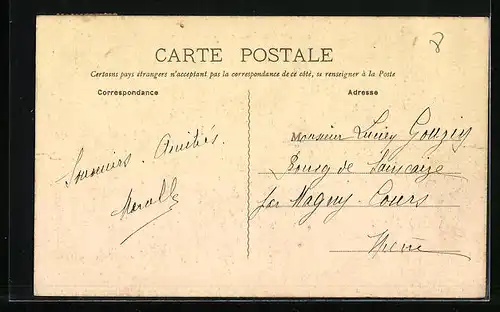 8
CARTE POSTALE
Certains pays étrangers n'acceptant pas la correspondance de ce côté, se renseigner à la Poste
Correspondance
Adresse
Monsieur Lucien
Bourg de Saincaize
par Magny-Cours
Nièvre
Souvenirs. Amitiés.